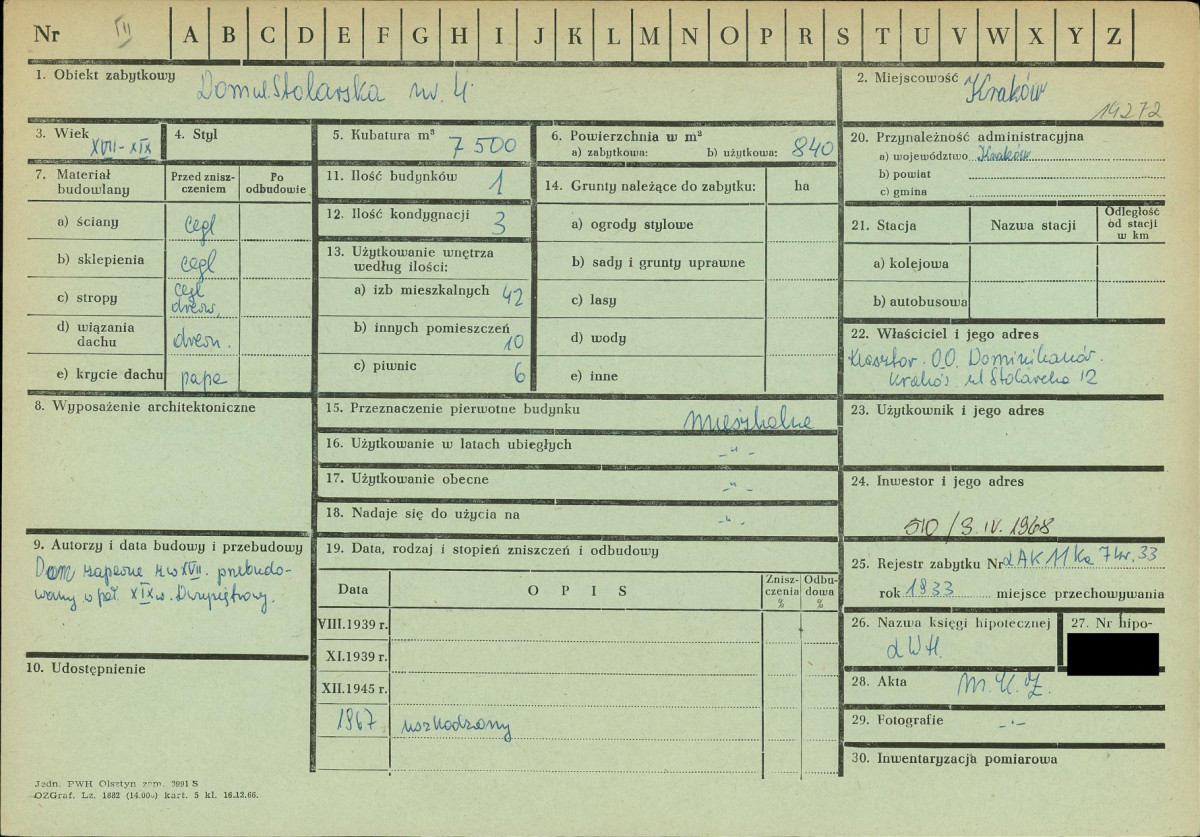 Nr III A B C D E F G H I J K L M N O P R S T U V W X Y Z
1. Obiekt zabytkowy Dom ul. Stolarska nr. 4
2. Miejscowość Kraków
14272
3. Wiek XVII-XIX
4. Styl
5. Kubatura m³ 7 500
6. Powierzchnia w m²
a) zabytkowa: b) użytkowa: 840
7. Materiał budowlany
Przed zniszczeniem
Po odbudowie
a) ściany cegl
b) sklepienia cegl
c) stropy cegl drewn.
d) wiązania dachu drewn.
e) krycie dachu papa
8. Wyposażenie architektoniczne
9. Autorzy i data budowy i przebudowy
Dom zapewne z w XVII. przebudo-
wany w poł. XIX w. Dwupiętrowy.
10. Udostępnienie
11. Ilość budynków 1
12. Ilość kondygnacji 3
13. Użytkowanie wnętrza
według ilości:
a) izb mieszkalnych 42
b) innych pomieszczeń 10
c) piwnic 6
14. Grunty należące do zabytku: ha
a) ogrody stylowe
b) sady i grunty uprawne
c) lasy
d) wody
e) inne
15. Przeznaczenie pierwotne budynku mieszkalne
16. Użytkowanie w latach ubiegłych -"-
17. Użytkowanie obecne -"-
18. Nadaje się do użycia na -"-
19. Data, rodzaj i stopień zniszczeń i odbudowy
Data OPIS Zniszczenia % Odbudowa %
VIII.1939 r.
XI.1939 r.
XII.1945 r.
1967 uszkodzony
20. Przynależność administracyjna
a) województwo Kraków
b) powiat
c) gmina
21. Stacja Nazwa stacji Odległość od stacji w km
a) kolejowa
b) autobusowa
22. Właściciel i jego adres
Klasztor O.O. Dominikanów.
Kraków ul Stolarska 12
23. Użytkownik i jego adres
24. Inwestor i jego adres
510/3.IV.1968
25. Rejestr zabytku Nr
rok 1933 miejsce przechowywania
26. Nazwa księgi hipotecznej
LWH.
27. Nr hipo-
28. Akta M.K.Z.
29. Fotografie -"-
30. Inwentaryzacja pomiarowa
Jedn. PWH Olsztyn zam. 3991 S
OZGraf. Lz. 1882 (14.000) kart. 5 kl. 16.12.66.